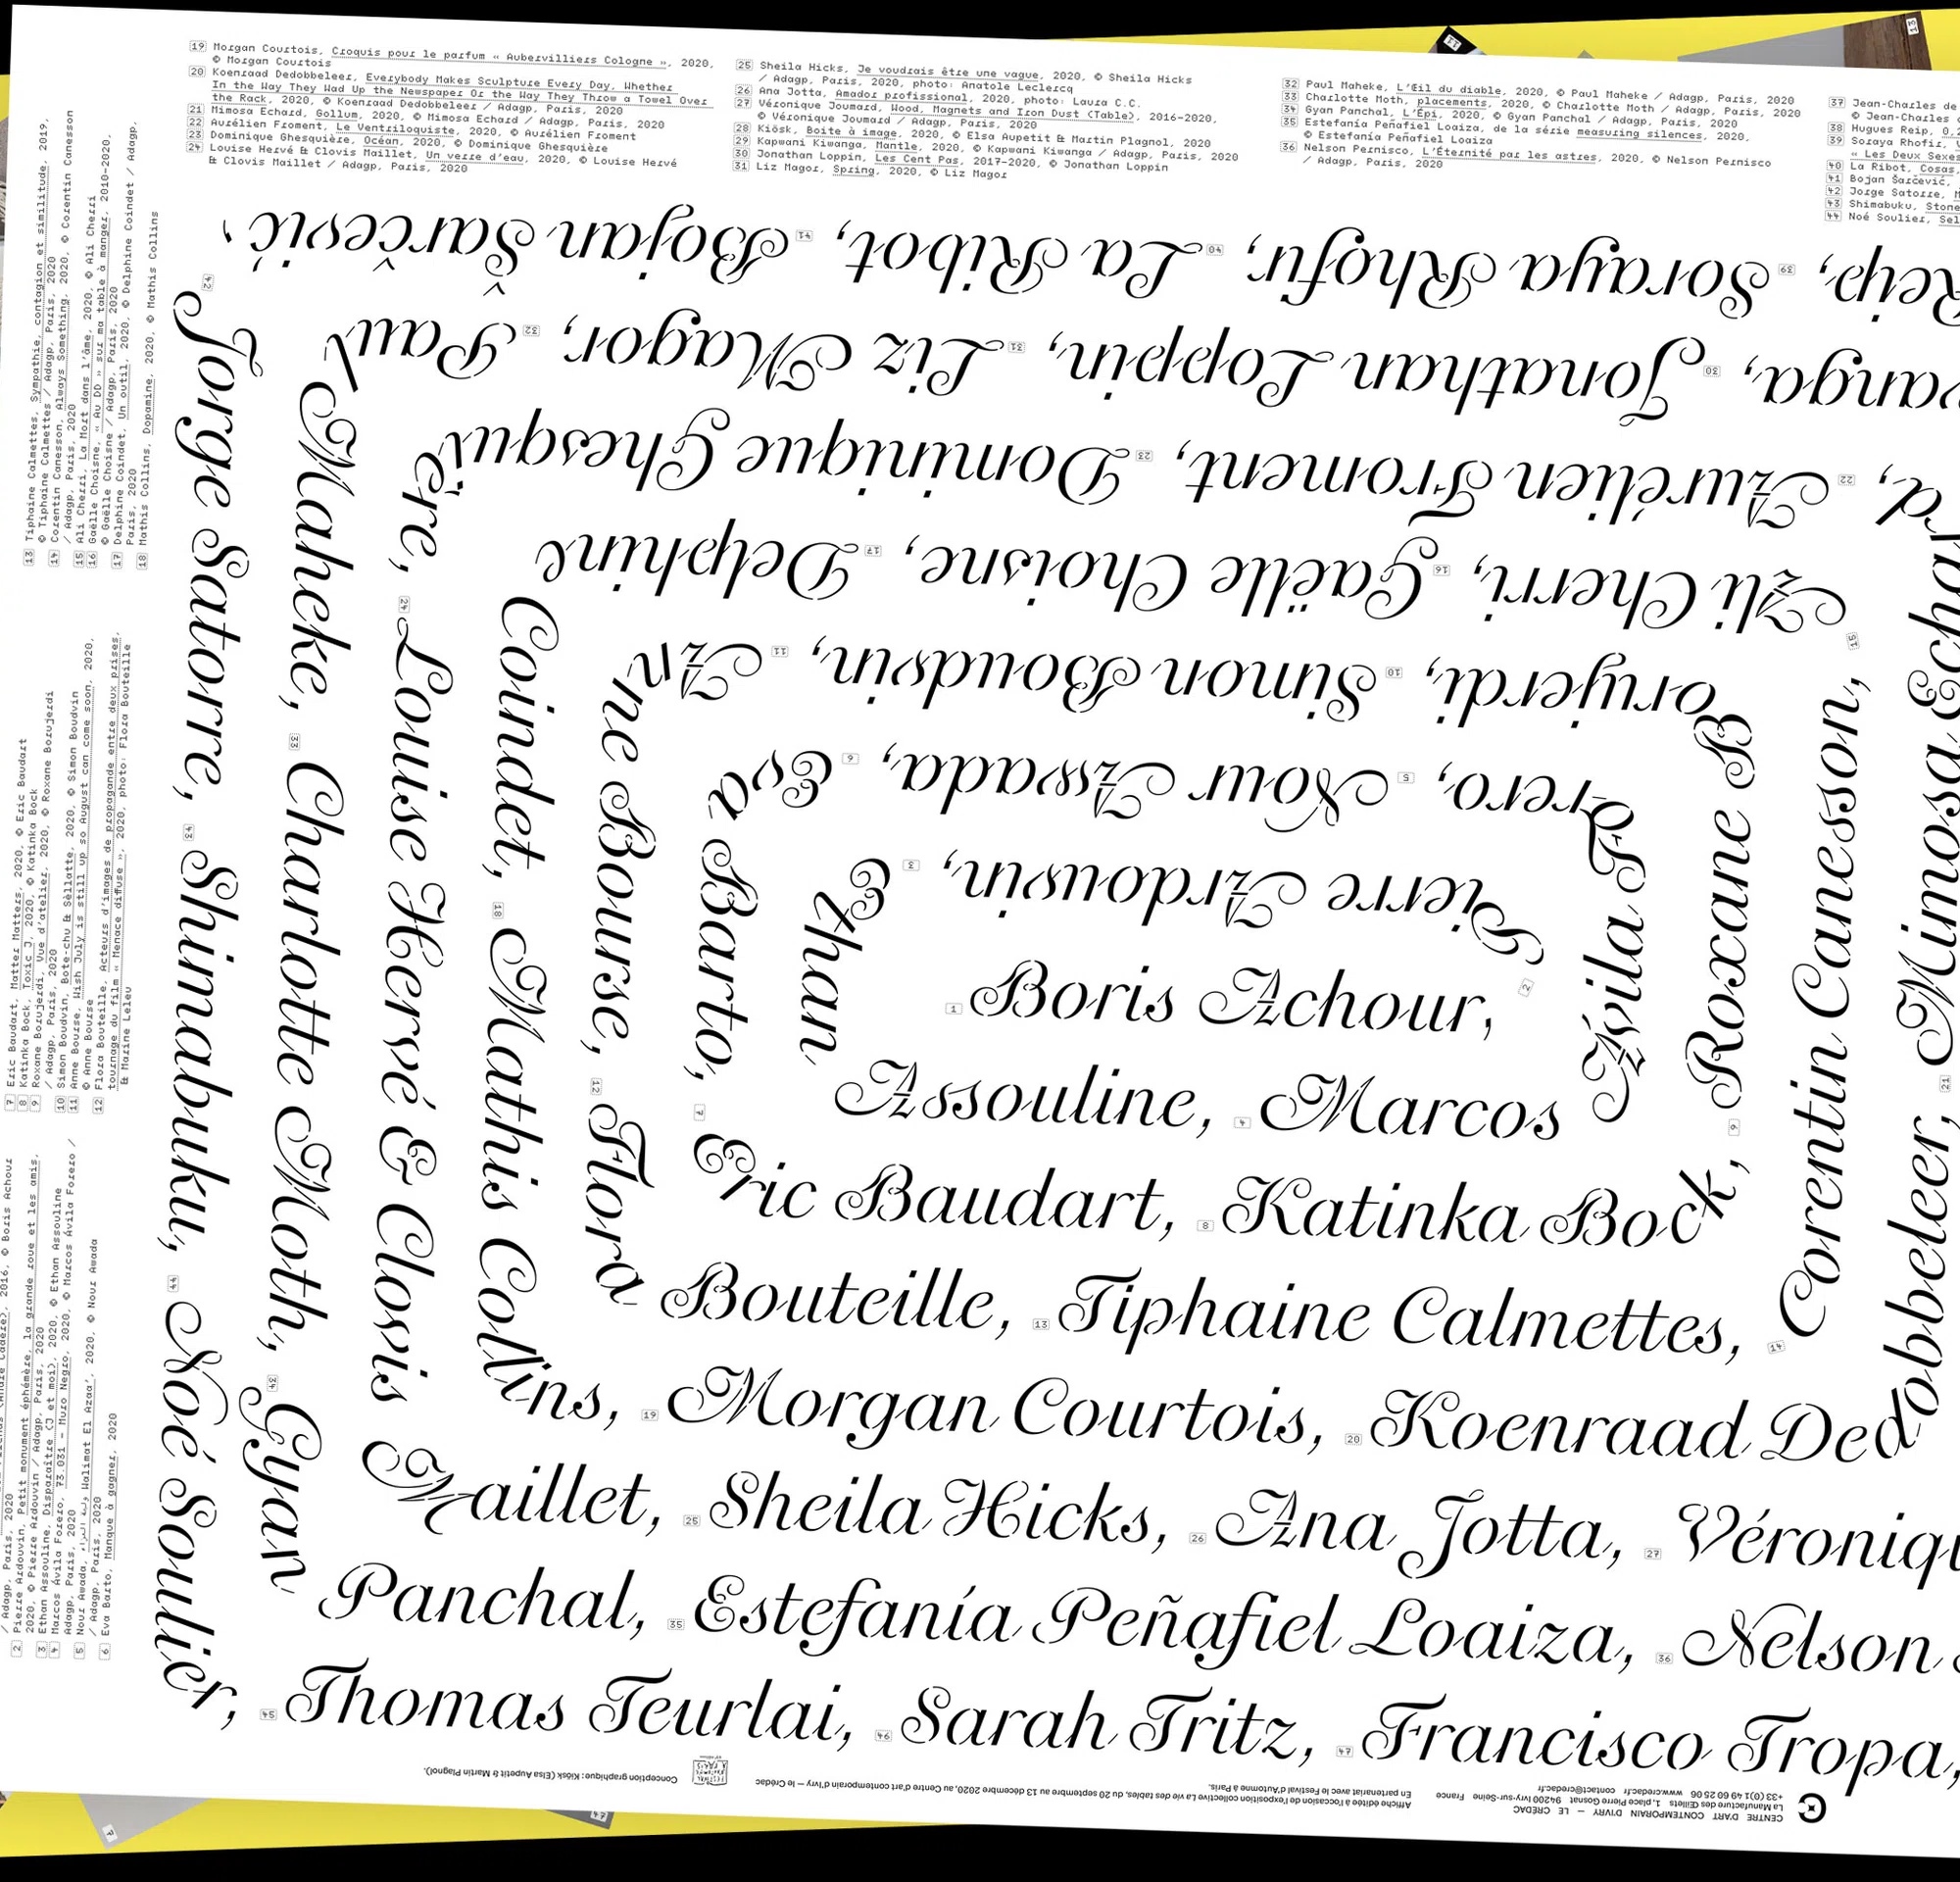 19 Morgan Courtois, Croquis pour le parfum « Aubervilliers Cologne », 2020,
© Morgan Courtois
20 Koenraad Dedobbeleer, Everybody Makes Sculpture Every Day, Whether
In the Way They Wad Up the Newspaper Or the Way They Throw a Towel Over
the Rack, 2020, © Koenraad Dedobbeleer / Adagp, Paris, 2020
21 Mimosa Echard, Gollum, 2020, © Mimosa Echard / Adagp, Paris, 2020
22 Aurélien Froment, Le Ventriloquiste, 2020, © Aurélien Froment
23 Dominique Ghesquière, Océan, 2020, © Dominique Ghesquière
24 Louise Hervé & Clovis Maillet, Un verre d'eau, 2020, © Louise Hervé
& Clovis Maillet / Adagp, Paris, 2020
25 Sheila Hicks, Je voudrais être une vague, 2020, © Sheila Hicks
/ Adagp, Paris, 2020, photo: Anatole Leclercq
26 Ana Jotta, Amador profissional, 2020, photo: Laura C.C.
27 Véronique Joumard, Wood, Magnets and Iron Dust (Table), 2016-2020,
© Véronique Joumard / Adagp, Paris, 2020
28 Kiösk, Boite à image, 2020, © Elsa Aupetit & Martin Plagnol, 2020
29 Kapwani Kiwanga, Mantle, 2020, © Kapwani Kiwanga / Adagp, Paris, 2020
30 Jonathan Loppin, Les Cent Pas, 2017-2020, © Jonathan Loppin
31 Liz Magor, Spring, 2020, © Liz Magor
32 Paul Maheke, L'Œil du diable, 2020, © Paul Maheke / Adagp, Paris, 2020
33 Charlotte Moth, placements, 2020, © Charlotte Moth / Adagp, Paris, 2020
34 Gyan Panchal, L'Épi, 2020, © Gyan Panchal / Adagp, Paris, 2020
35 Estefanía Peñafiel Loaiza, de la série measuring silences, 2020,
© Estefanía Peñafiel Loaiza
36 Nelson Pernisco, L'Éternité par les astres, 2020, © Nelson Pernisco
/ Adagp, Paris, 2020
37 Jean-Charles de
© Jean-Charles
38 Hugues Reip,
39 Soraya Rhofir,
« Les Deux
40 La Ribot, Cosas,
41 Bojan Šarčević,
42 Jorge Satorre,
43 Shimabuku, Stone
44 Noé Soulier,
13 Tiphaine Calmettes, Sympathie, contagion et similitude, 2019,
© Tiphaine Calmettes / Adagp, Paris, 2020
14 Corentin Canesson, Always Something, 2020, © Corentin Canesson
/ Adagp, Paris, 2020
15 Ali Cherri, La Mort dans l'âme, 2020, © Ali Cherri
16 Gaëlle Choisne, « Au DD » sur ma table à manger, 2010-2020,
© Gaëlle Choisne / Adagp, Paris, 2020
17 Delphine Coindet, Un outil, 2020, © Delphine Coindet / Adagp,
Paris, 2020
18 Mathis Collins, Dopamine, 2020, © Mathis Collins
7 Eric Baudart, Matter Matters, 2020, © Eric Baudart
8 Katinka Bock, Toxic J, 2020, © Katinka Bock
9 Roxane Borujerdi, Vue d'atelier, 2020, © Roxane Borujerdi
/ Adagp, Paris, 2020
10 Simon Boudvin, Bote-chu & Sèllatte, 2020, © Simon Boudvin
11 Anne Bourse, Wish July is still up so August can come soon, 2020,
© Anne Bourse
12 Flora Bouteille, Acteurs d'images de propagande entre deux prises,
tournage du film « Menace diffuse », 2020, photo: Flora Bouteille
& Marine Leleu
2016, © Boris Achour
/ Adagp, Paris, 2020
2 Pierre Ardouvin, Petit monument éphémère, la grande roue et les amis,
2020, © Pierre Ardouvin / Adagp, Paris, 2020
3 Ethan Assouline, Disparaître (J et moi), 2020, © Ethan Assouline
4 Marcos Ávila Forero, 73.031 - Muro Negro, 2020, © Marcos Ávila Forero /
Adagp, Paris, 2020
5 Nour Awada, Walimat El Azaa', 2020, © Nour Awada
/ Adagp, Paris, 2020
6 Eva Barto, Manque à gagner, 2020
1 Boris Achour,
2 Pierre Ardouvin,
3 Ethan
Assouline, 4 Marcos
Ávila Forero,
5 Nour Awada,
6 Eva Barto,
7 Eric Baudart, 8 Katinka Bock,
6 Roxane Borujerdi,
10 Simon Boudvin,
11 Anne Bourse,
12 Flora
Bouteille, 13 Tiphaine Calmettes,
14 Corentin Canesson,
15 Ali Cherri, 16 Gaëlle Choisne, 17 Delphine
Coindet, 18 Mathis Collins,
19 Morgan Courtois, 20 Koenraad Dedobbeleer,
21 Mimosa Echard,
22 Aurélien Froment, 23 Dominique Ghesquière,
24 Louise Hervé & Clovis
Maillet, 25 Sheila Hicks, 26 Ana Jotta, 27 Véroniq
anga, 30 Jonathan Loppin, 31 Liz Magor, 32 Paul
Maheke, 33 Charlotte Moth, 34 Gyan
Panchal, 35 Estefanía Peñafiel Loaiza, 36 Nelson
Reip, 39 Soraya Rhofir, 40 La Ribot, 41 Bojan Šarčević,
42 Jorge Satorre, 43 Shimabuku, 44 Noé Soulier,
45 Thomas Teurlai, 46 Sarah Tritz, 47 Francisco Tropa,
CENTRE D'ART CONTEMPORAIN D'IVRY — LE CRÉDAC
La Manufacture des Œillets 1, place Pierre Gosnat 94200 Ivry-sur-Seine France
+33 (0)1 49 60 25 06 www.credac.fr contact@credac.fr
Affiche éditée à l'occasion de l'exposition collective La vie des tables, du 20 septembre au 13 décembre 2020, au Centre d'art contemporain d'Ivry — le Crédac
En partenariat avec le Festival d'Automne à Paris.
Conception graphique: Kiösk (Elsa Aupetit & Martin Plagnol).
11
13